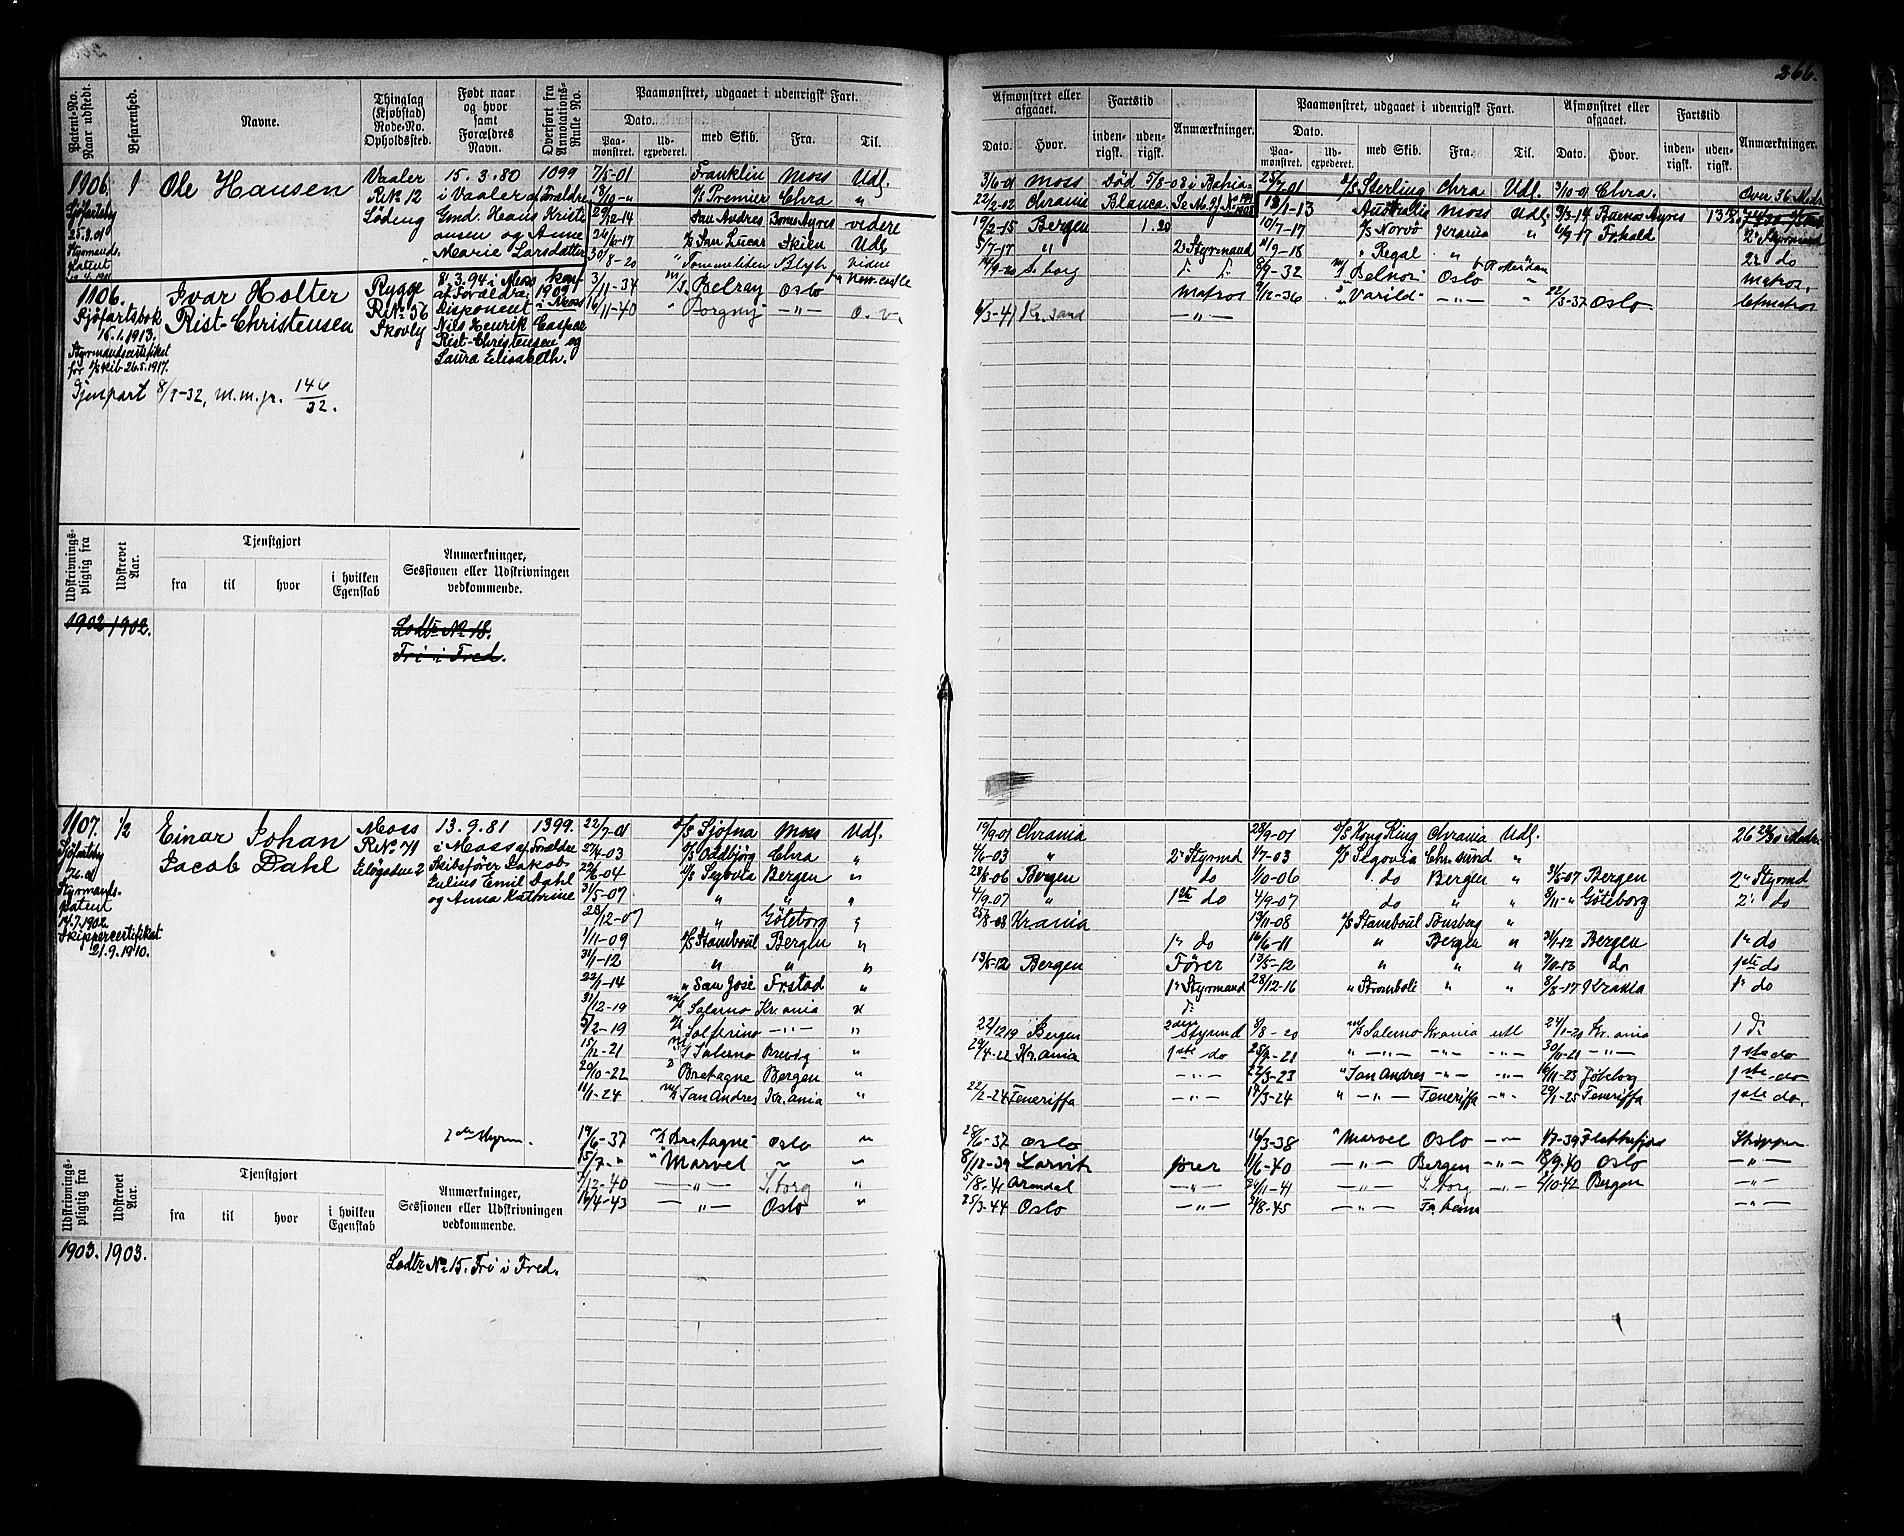 266.
Patent-No. Naar udstedt.
Befarenhed.
Navne.
Thinglag (Kjøbstad) Rode-No. Opholdssted.
Født naar og hvor samt Forældres Navn.
Overført fra Annotations-Rulle No.
Paamønstret, udgaaet i udenrigsk Fart.
Dato.
Paa-mønstret.
Ud-expederet.
med Skib.
Fra.
Til.
Afmønstret eller afgaaet.
Dato.
Hvor.
Fartstid
inden-rigsk.
uden-rigsk.
Anmærkninger.
Paamønstret, udgaaet i udenrigsk Fart.
Dato.
Paa-mønstret.
Ud-expederet.
med Skib.
Fra.
Til.
Afmønstret eller afgaaet.
Dato.
Hvor.
Fartstid
inden-rigsk.
uden-rigsk.
Anmærkninger.
1 Ole Hansen Vaaler 15.3.80 1099 7/5-01 Franklin Moss Udl.
R.No 12 i Vaaler af Forældre Premier Chra "
Løding Gmd. Hans Kristi-
ansen og Anne
Marie Larsdatter
Sjøfartsbog
25.3.01
Styrmands-
patent
3/6-01 Moss Død 5/8-08 i Bahia-
22/2-12 Chrania Blanca.
25/7-01 Sterling Chra Udl. 3/10-01 Chra. Over 36 Mdr.
1106. Ivar Holter Rygge 8.3.94 i Moss
Sjøfartsbok Rist-Christensen R.No 56 af Forældre 1909
16.1.1913. Skovly Disponent i Moss
Styrmandscertifikat Nils Henrik Caspar
for s/skib 26.5.1917. Rist-Christensen og
Laura Elisabeth.
Gjenpart 8/9-32, m.m.jr. 146/32.
29/12-14 San Andres Buenos Ayres videre
26/6-17 San Lucar Skien Udl.
30/8-20 Tommeliten Blyth videre
3/11-34 Belray Oslo Newcastle
16/11-40 Borgny -"- O. v.
19/2-15 Bergen 1.20
5/7-17 " 2. Styrmand
Matros
6/3-41 Kr.sand -"-
1/1-13 Australia Moss Udl. 9/3-14 Buenos Ayres
10/7-17 Norvo Krania " 2. Styrmand
11/9-18 " Regal " 2. do
8/9-32 Belnor Oslo Matros.
9/12-36 " Varild -"- " 22/3-37 Oslo
Udskrivnings-pligtig fra
Udskrevet Aar.
Tjenstgjort
fra
til
hvor
i hvilken Egenskab
Anmærkninger, Sessionen eller Udskrivningen vedkommende.
1902 1902. Lodtr. No 18.
Fri i Fred.
1107. 1/2 Einar Johan Moss 13.9.81 1399.
Sjøfartsbog Jacob Dahl R.No 71 i Moss af Forældre
Styrmands- Skibsfører Jakob
patent Julius Emil Dahl
14.7.1902. og Anna Kathrine
Skippercertifikat
21.9.1910.
22/7-01 Sjøfna Moss Udl.
27/4-03 Oddbjørg Chra "
22/6-04 Segovia Bergen "
31/5-07 " " "
28/12-07 " Göteborg "
1/11-09 Stamboul Bergen "
31/1-12 " " "
22/1-14 " San José Frstad "
31/12-19 Salerno Kr.ania "
5/2-19 Solferino -"- "
15/12-21 Salerno Brevig "
20/10-22 Bretagne Bergen "
11/1-24 San Andres Kr.ania "
2den styrm. 19/6-37 Bretagne Oslo "
15/7-" " Marvel "
7/12-40 -"- S.borg "
16/4-43 -"- Oslo "
19/9-01 Chrania
4/6-03 " 2. Styrmd
28/8-06 Bergen do
4/9-07 " 1ste do
25/8-08 Krania
1. do
13/5-12 Bergen Fører
1. Styrmand
22/12 19 Bergen 2den Styrmd
29/4-22 Kr.ania 1ste do
-"-
22/2-24 Teneriffa -"-
28/6-37 Oslo
8/12-39 Larvik fører
5/8-41 Arendal -"-
25/3-44 Oslo -"-
28/9-01 Kong Ring Chrania Udl.
4/7-03 Segovia Chr.sund "
1/10-06 do Bergen " 31/5-07 Bergen 2. Styrmd
4/9-07 do " " 8/11-" Göteborg 2. do
19/11-08 Stamboul Tønsberg "
16/6-11 " Bergen " 31/1-12 Bergen 1. do
13/5-12 " " " 7/10-13 do 1ste do
28/12-16 " Stromboli " " 8/8-17 Krania 1. do
8/8-20 Salerno Krania utl 24/1-20 Kr.ania
25/7-21 " -"- -"- -"- 30/11-21 -"- 1ste do
22/3-23 " San Andres -"- -"- 16/11-23 Göteborg 1ste do
17/3-24 " -"- Teneriffa -"- 29/1-25 Teneriffa 1ste do.
16/3-38 " Marvel Oslo -"- Skipper
1/6-40 -"- Bergen -"- 18/9-40 Oslo -"-
24/11-41 -"- S.borg -"- 2/10-42 Bergen -"-
2/8-45 -"- -"-
Udskrivnings-pligtig fra
Udskrevet Aar.
Tjenstgjort
fra
til
hvor
i hvilken Egenskab
Anmærkninger, Sessionen eller Udskrivningen vedkommende.
1903. 1903. Lodtr. No 15. Fri i Fred.